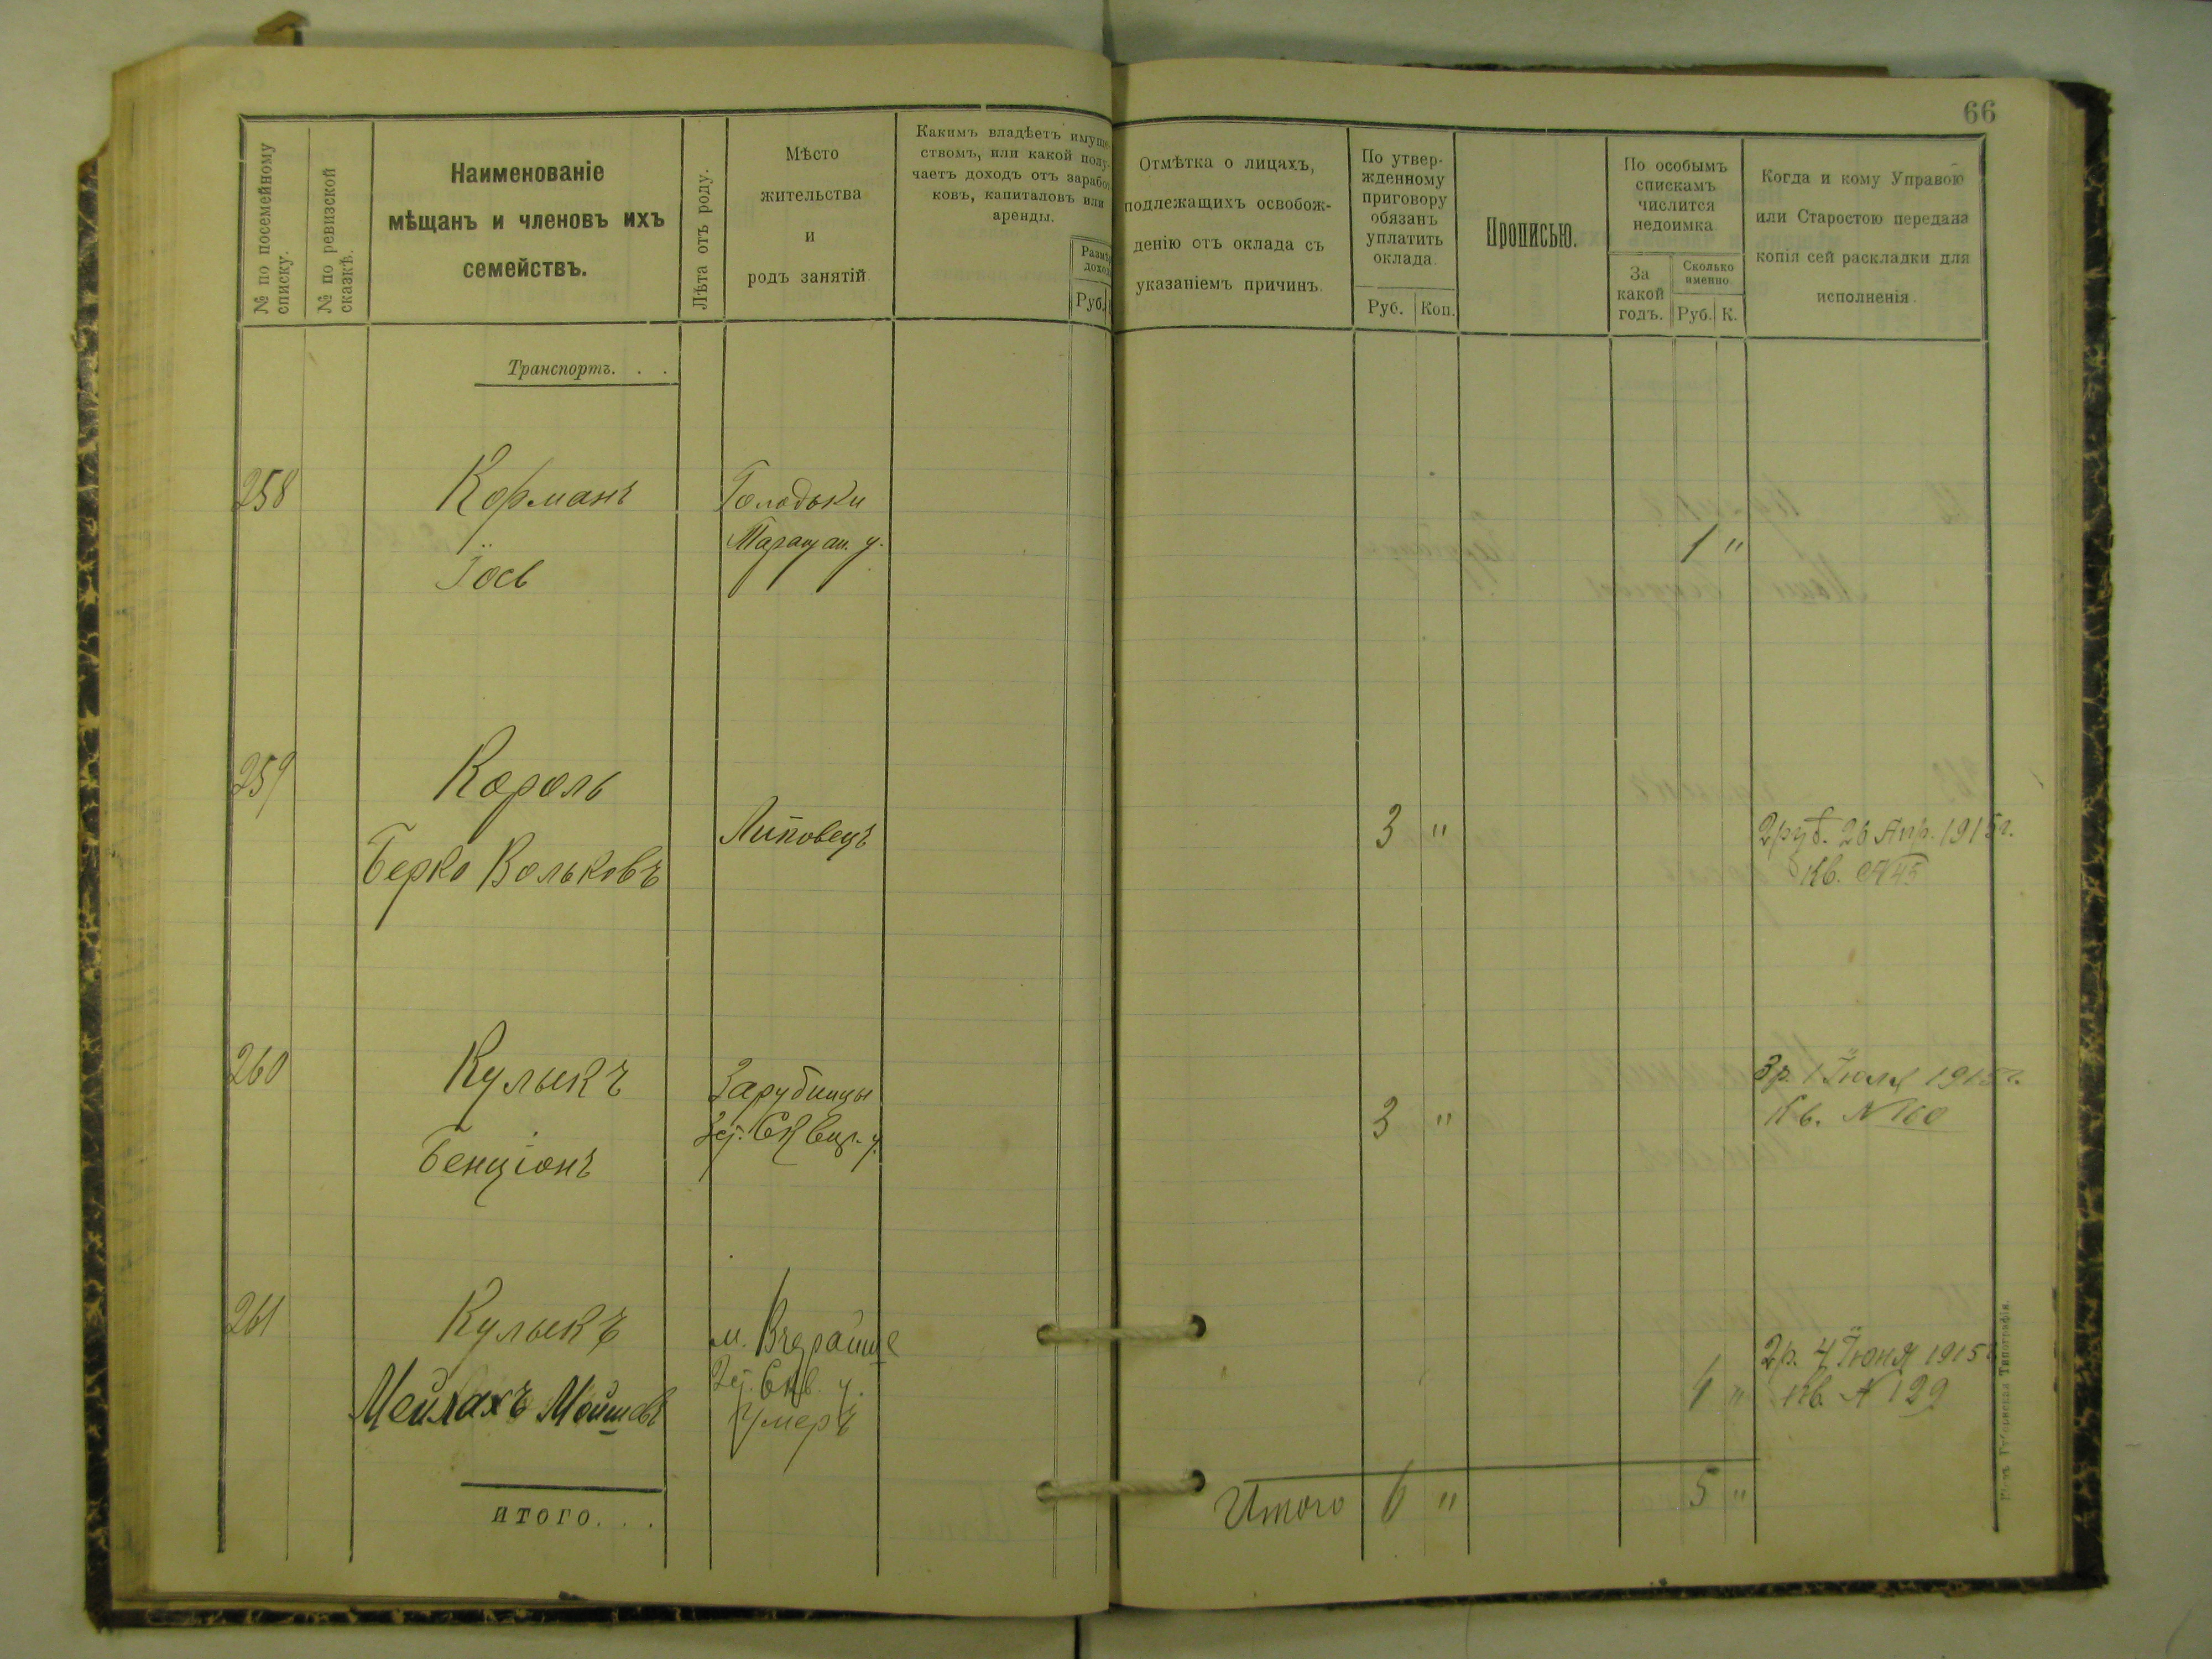 66
№ по посемейному списку.
№ по ревизской сказкѣ.
Наименованіе
мѣщанъ и членовъ ихъ
семействъ.
Лѣта отъ роду.
Мѣсто
жительства
и
родъ занятій.
Какимъ владѣетъ имуще-
ствомъ, или какой полу-
чаетъ доходъ отъ заработ-
ковъ, капиталовъ или
аренды.
Руб.
Отмѣтка о лицахъ,
подлежащихъ освобож-
денію отъ оклада съ
указаніемъ причинъ.
По утвер-
жденному
приговору
обязанъ
уплатить
оклада.
Руб. Коп.
Прописью.
По особымъ
спискамъ
числится
недоимка.
За
какой
годъ.
Сколько
именно.
Руб. К.
Когда и кому Управою
или Старостою передана
копія сей раскладки для
исполненія.
Транспортъ. . .
258 Корманъ
Іось
Голодьки
Таращан. у.
1 "
259 Король
Берко Вольковъ
Липовецъ
3 "
2 руб. 26 Апр. 1915 г.
Кв. № 45
260 Кулыкъ
Бенціонъ
Зарубинцы
3 "
3 р. 1 Іюля 1915 г.
Кв. № 160
261 Кулыкъ
Мейлахъ Мойшевъ
м. Вчерайше
Скв. у.
Умеръ
4 "
2 р. 4 Іюня 1915 г.
Кв. № 129
ИТОГО. . .
Итого 6 " 5 "